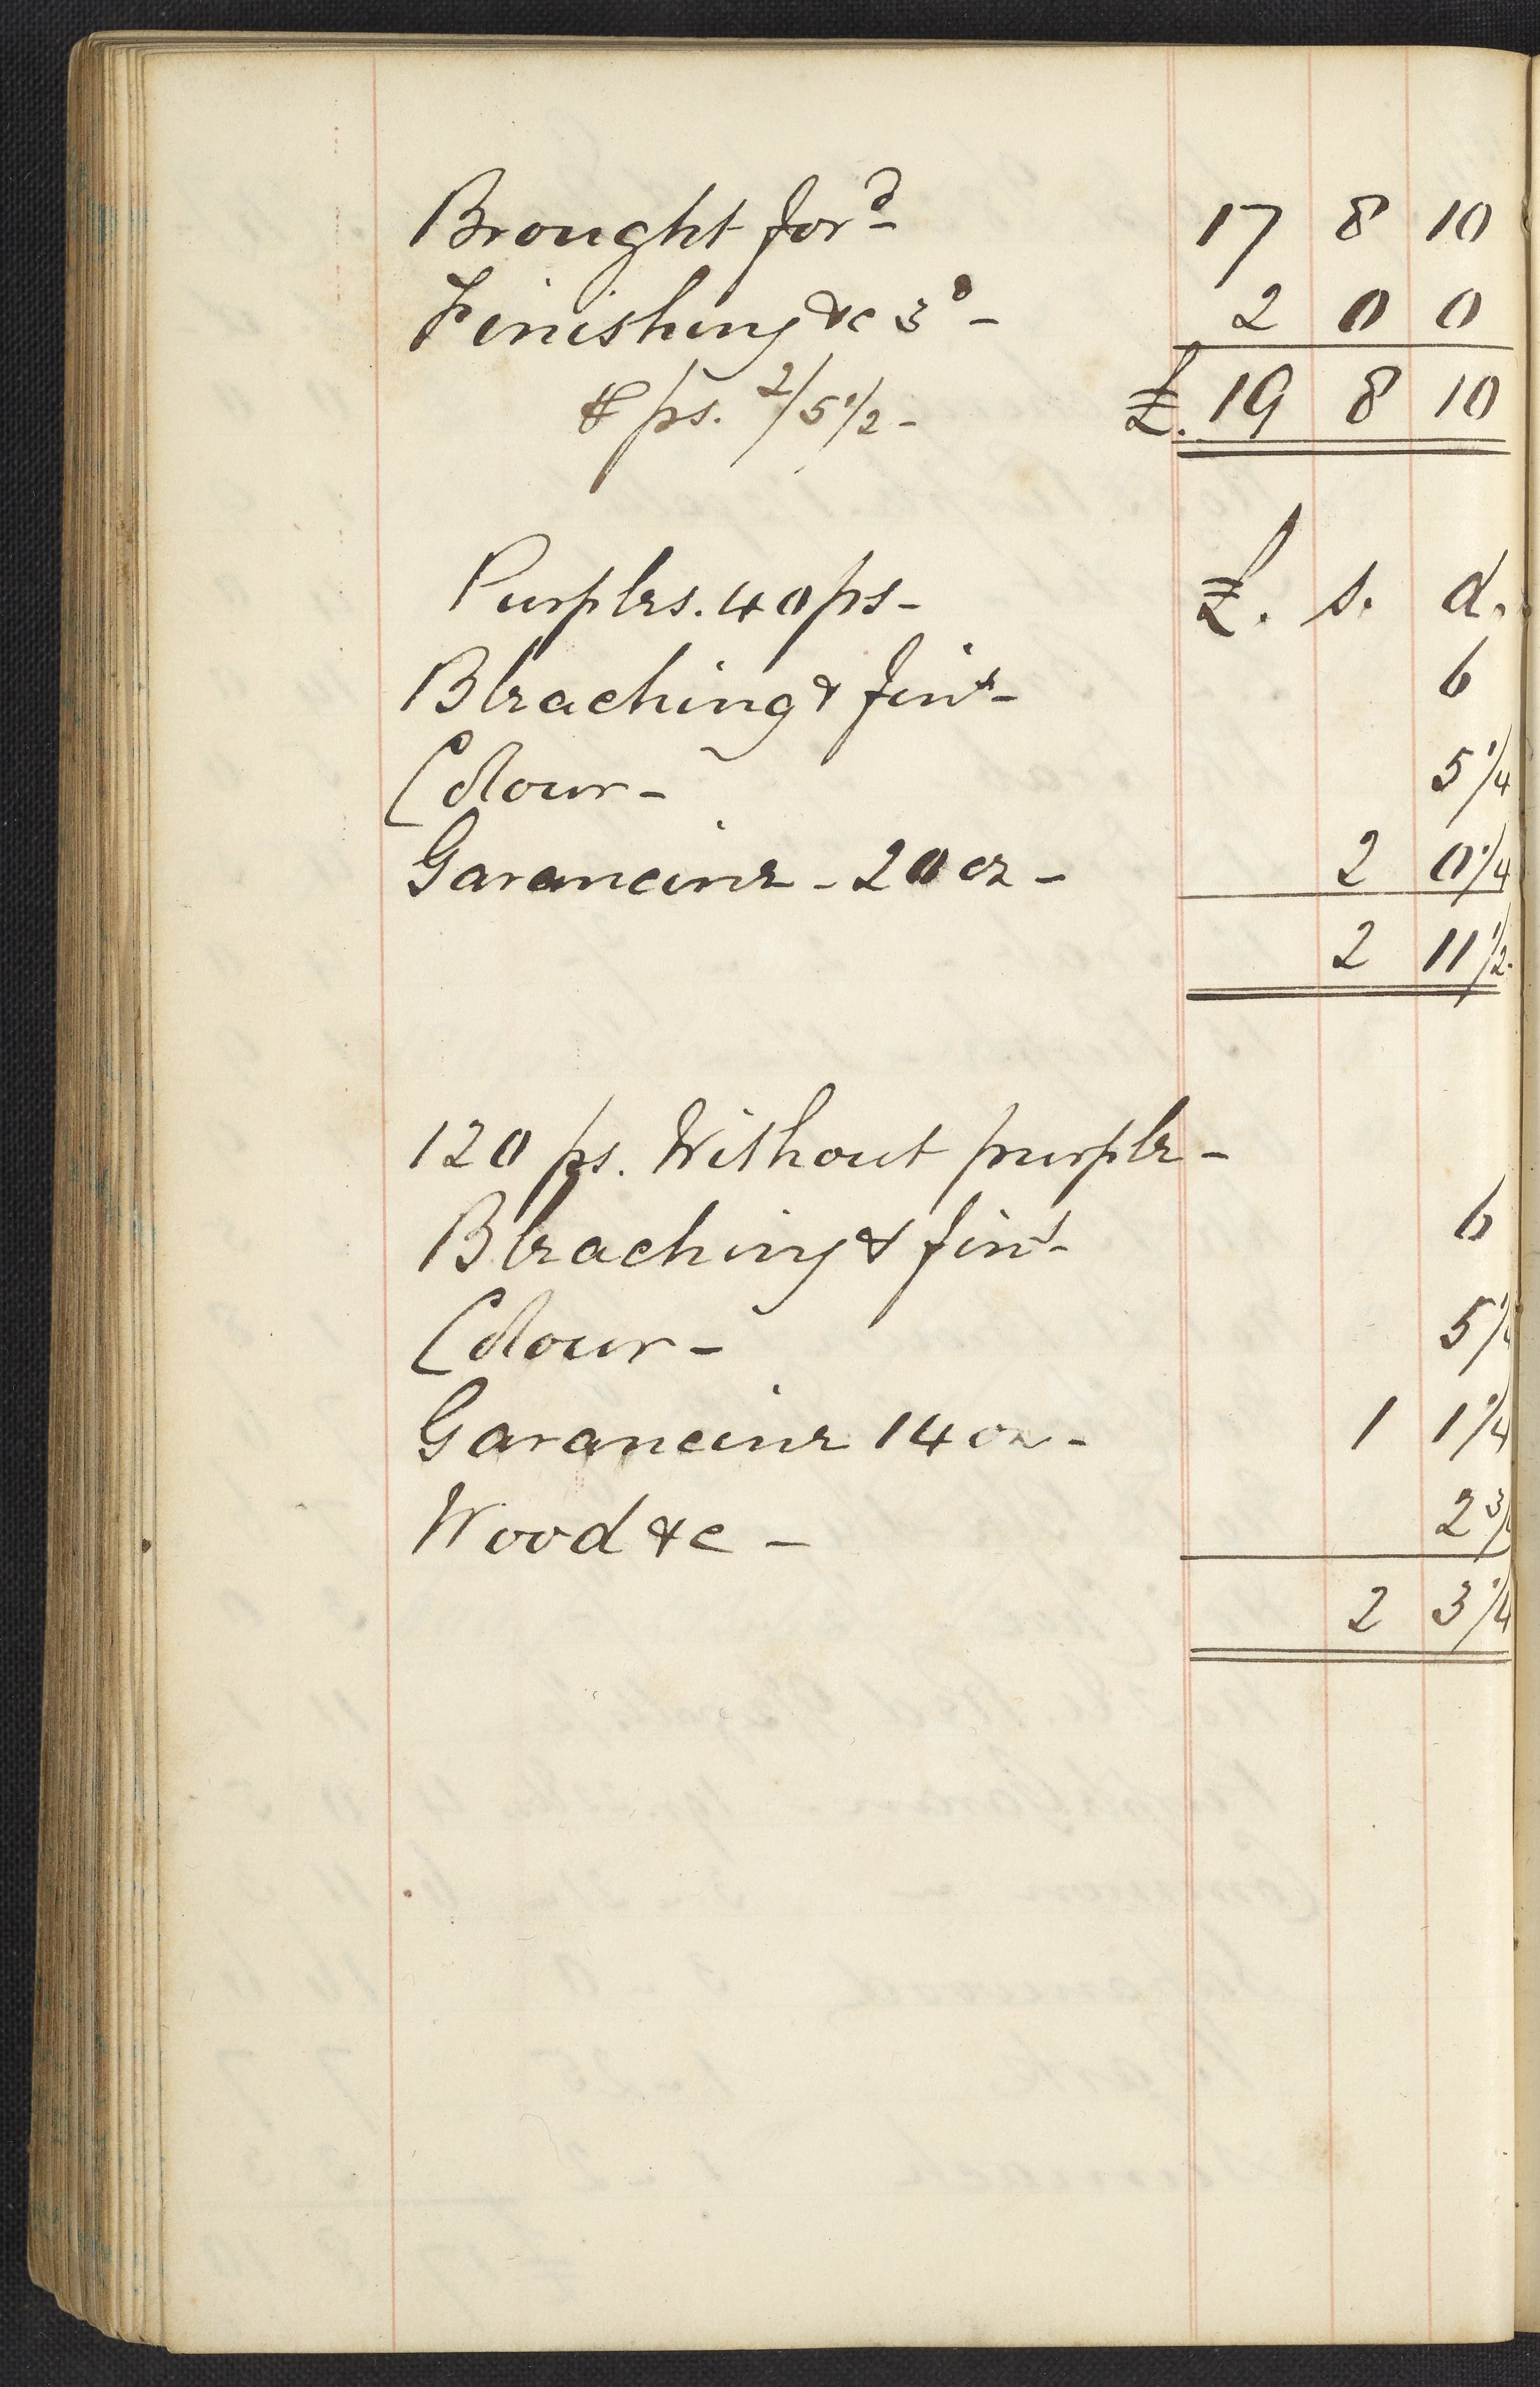 Brought for^d - 17 8 10
Finishing &c 3^d - 2 0 0
℔ ps. 2/5 1/2 - £. 19 8 10
Purples. 40 ps - £. s. d.
Bleaching & fin^g - 6
Colour - 5 1/4
Garancine - 20 oz - 2 0 1/4
2 11 1/2.
120 ps. Without purple -
Bleaching & fin^g - 6
Colour - 5 1/4
Garancine 14 oz - 1 1 1/4
Wood &c - 2 3/4
2 3 1/4